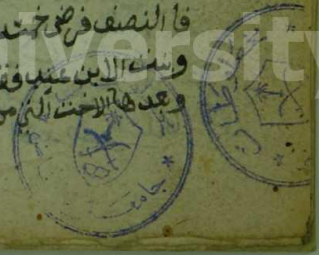 University
فا النصف فرضي خمسة
وبنت الابن عند فقد
وبعدها الاخت التي من
جامعة